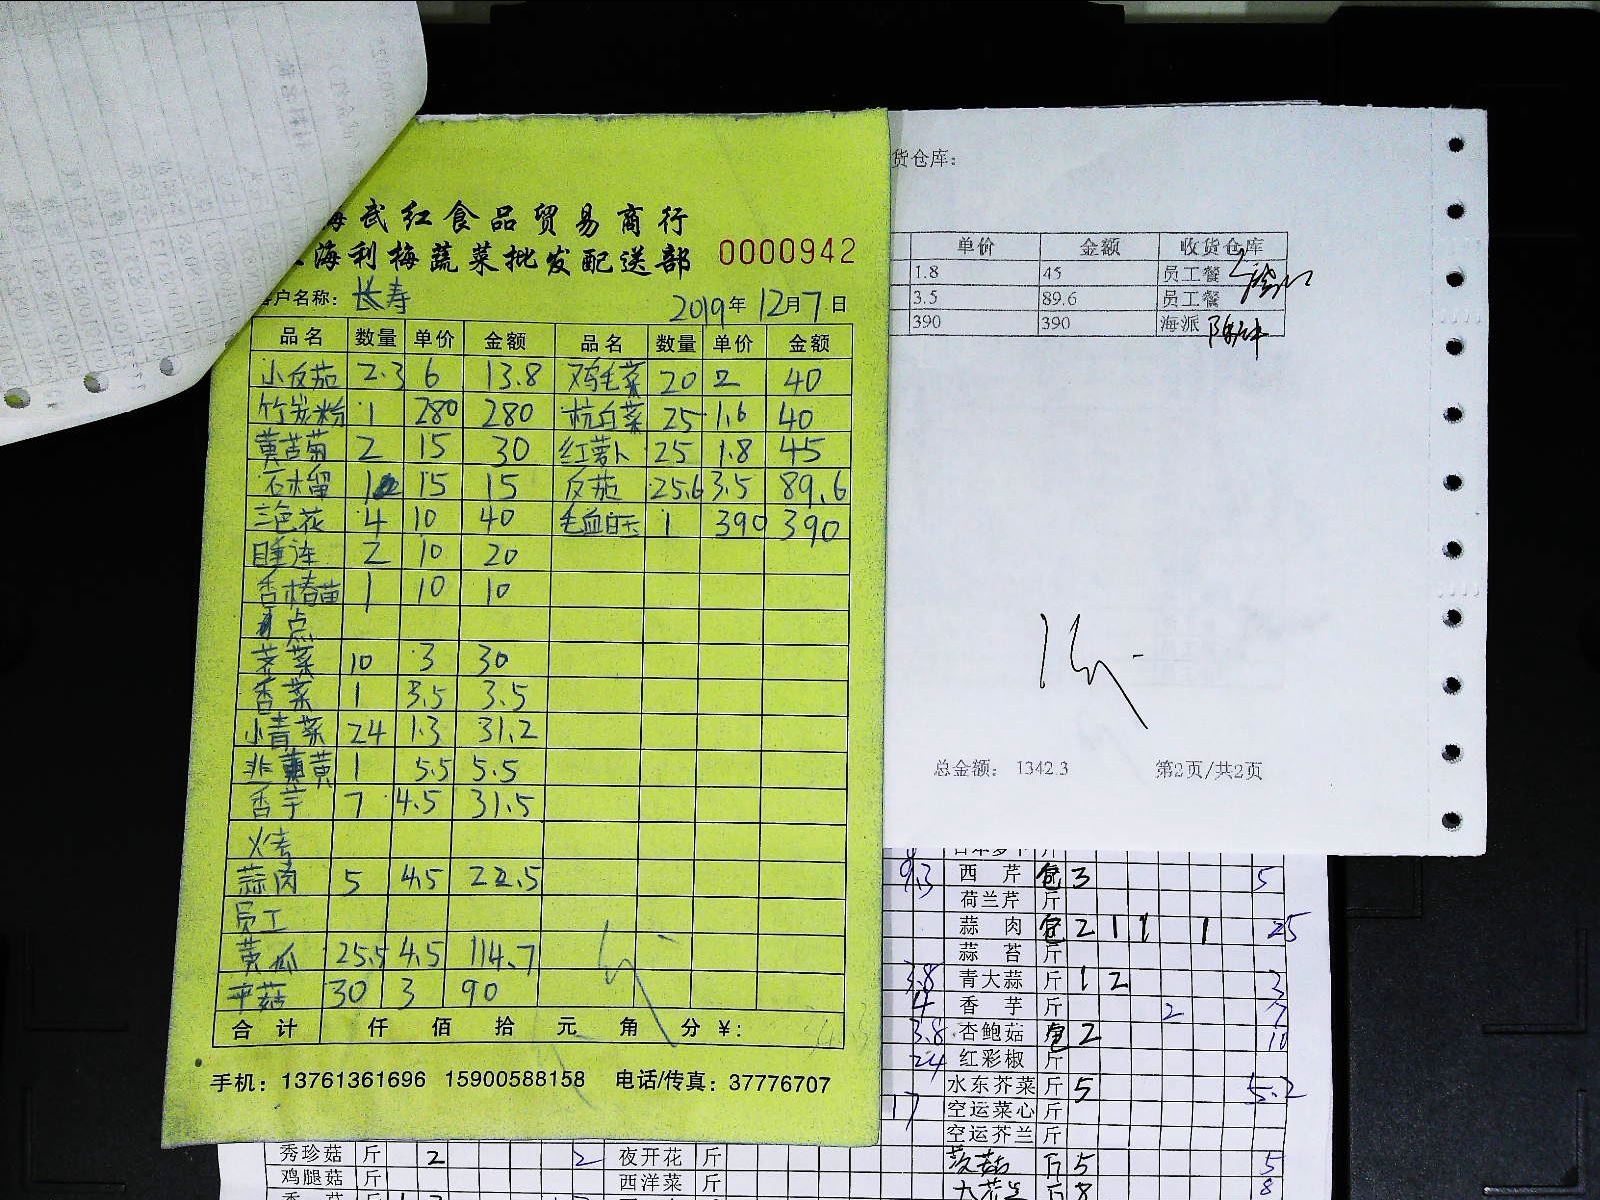 海武红食品贸易商行
海利梅蔬菜批发配送部 0000942
客户名称: 长寿 2019年12月7日
品名 数量 单价 金额 品名 数量 单价 金额
小反茄 2.3 6 13.8 鸡毛菜 20 2 40
竹炭粉 1 280 280 杭白菜 25 1.6 40
黄苦菊 2 15 30 红萝卜 25 1.8 45
石榴 1 15 15 反茄 25.6 3.5 89.6
三色花 4 10 40 毛血旺 1 390 390
睡连 2 10 20
香椿苗 1 10 10
点
荠菜 10 3 30
香菜 1 3.5 3.5
小青菜 24 1.3 31.2
韭黄 1 5.5 5.5
香芋 7 4.5 31.5
火考
蒜肉 5 4.5 22.5
员工
黄瓜 25.5 4.5 114.7
平菇 30 3 90
合计 仟 佰 拾 元 角 分 ¥:
手机: 13761361696 15900588158 电话/传真: 37776707
货仓库:
单价 金额 收货仓库
1.8 45 员工餐
3.5 89.6 员工餐
390 390 海派
总金额: 1342.3 第2页/共2页
9.3 西芹 包 3 5
荷兰芹 斤
蒜肉 包 2 1 1 1 25
蒜苔 斤
3.8 青大蒜 斤 1 2 3
4 香芋 斤 2 7
3.8 杏鲍菇 包 2 10
24 红彩椒 斤
水东芥菜 斤 5 5.2
17 空运菜心 斤
空运芥兰 斤
秀珍菇 斤 2 2 夜开花 斤 茨菇 斤 5 5
鸡腿菇 斤 西洋菜 斤 8 8